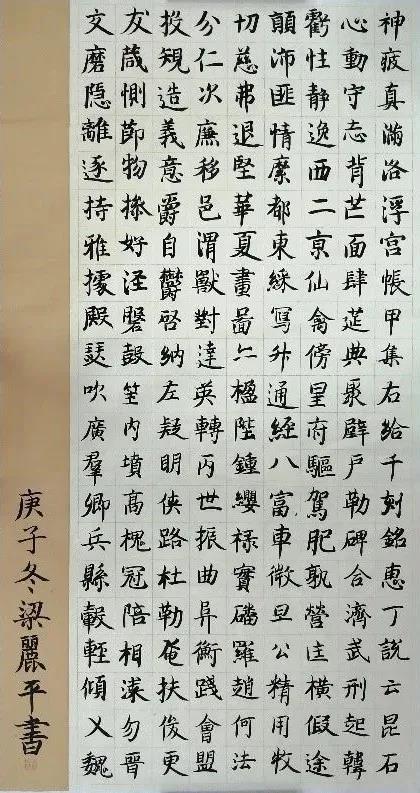 神疲真滿洛浮宫帳甲集右給千刻銘惠丁說云昆石
心動守志背芒面肆莚典聚壁戶勒碑合濟武刑起韓
虧性靜逸西二京仙禽傍星府驅駕肥孰營匡橫假途
顛沛匪情縻都東綵寫升通經八富車微旦公精用牧
切慈弗退堅華夏畫啚楹陛鍾纓祿實磻羅趙何法
分仁次廉移邑渭獸對達英轉丙世振曲衡踐會盟
投規造義意爵自鬱啓納左疑明俠路杜勒奄扶俊更
友箴惻節物操好涇磐鼓笙內墳高槐冠陪相漆勿晉
交磨隱離逐持雅據殿瑟吹廣羣卿兵縣轂輕傾乂魏
庚子冬梁麗平書